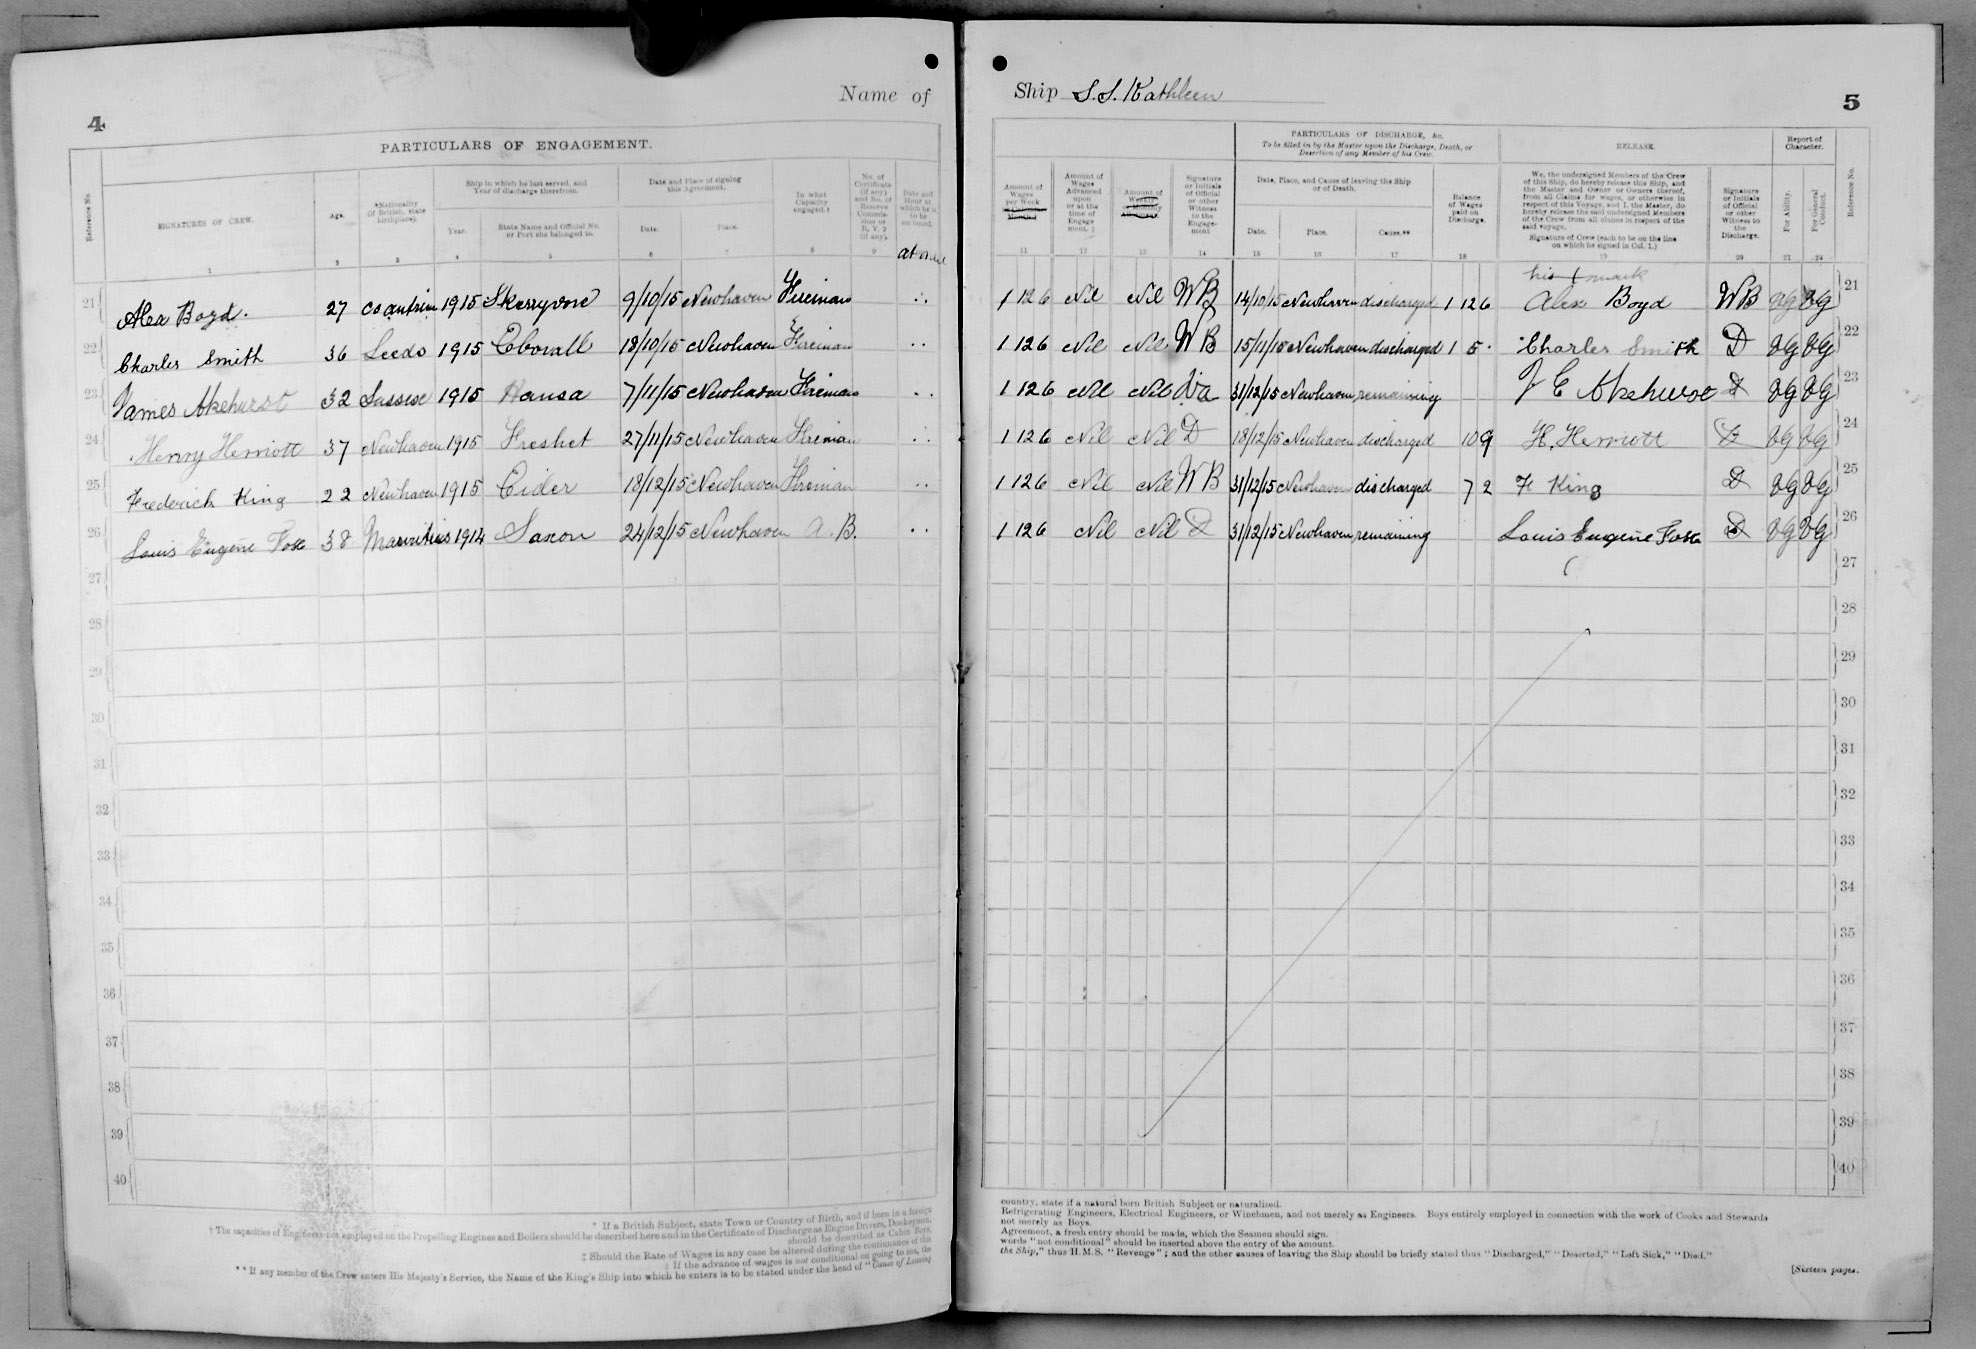 Name of
4
PARTICULARS OF ENGAGEMENT.
Reference No.
SIGNATURES OF CREW.
Age.
*Nationality (If British, state birthplace).
Ship in which he last served, and Year of discharge therefrom.
Year.
State Name and Official No. or Port she belonged to.
Date and Place of signing this Agreement.
Date.
Place.
In what Capacity engaged.†
No. of Certificate (if any) and No. of Reserve Commission or R. V. 2 (if any).
Date and Hour at which he is to be on board.
1 3 2 4 5 6 7 8 9
at once
21 Alex Boyd. 27 Co antrim 1915 Skerryvore 9/10/15 Newhaven Fireman
22 Charles Smith 36 Leeds 1915 Eborall 18/10/15 Newhaven Fireman
23 James Akehurst 32 Sussex 1915 Hansa 7/11/15 Newhaven Fireman
24 Henry Herriott 37 Newhaven 1915 Freshet 27/11/15 Newhaven Fireman
25 Frederick King 22 Newhaven 1915 Cider 18/12/15 Newhaven Fireman
26 Louis Eugene Foss 38 Mauritius 1914 Saxon 24/12/15 Newhaven A.B.
27
28
29
30
31
32
33
34
35
36
37
38
39
40
* If a British Subject, state Town or Country of Birth, and if born in a foreign
† The capacities of Engineers not employed on the Propelling Engines and Boilers should be described here and in the Certificate of Discharge as Engine Drivers, Donkeymen,
should be described as Cabin Boys,
‡ Should the Rate of Wages in any case be altered during the continuance of this
If the advance of wages is not conditional on going to sea, the
** If any member of the Crew enters His Majesty's Service, the Name of the King's Ship into which he enters is to be stated under the head of "Cause of Leaving
Ship S.S. Kathleen
5
Amount of Wages per Week
Amount of Wages Advanced upon or at the time of Engagement.
Amount of
Signature or Initials of Official or other Witness to the Engagement
PARTICULARS OF DISCHARGE, &c.
To be filled in by the Master upon the Discharge, Death, or Desertion of any Member of his Crew.
Date, Place, and Cause of leaving the Ship or of Death.
Date.
Place.
Cause.**
Balance of Wages paid on Discharge.
RELEASE.
We, the undersigned Members of the Crew
of this Ship, do hereby release this Ship, and
the Master and Owner or Owners thereof,
from all Claims for wages, or otherwise in
respect of this Voyage, and I, the Master, do
hereby release the said undersigned Members
of the Crew from all claims in respect of the
said voyage.
Signature of Crew (each to be on the line
on which he signed in Col. 1.)
Signature or Initials of Official or other Witness to the Discharge.
Report of Character.
For Ability.
For General Conduct.
Reference No.
11 12 13 14 15 16 17 18 19 20 21 24
his mark
1 12 6 Nil Nil WB 14/10/15 Newhaven discharged 1 12 6 Alex Boyd WB VG VG 21
1 12 6 Nil Nil WB 15/11/15 Newhaven discharged 1 5 · Charles Smith D VG VG 22
1 12 6 Nil Nil 31/12/15 Newhaven remaining J E Akehurst D VG VG 23
1 12 6 Nil Nil D 18/12/15 Newhaven discharged 10 9 H. Herriott D VG VG 24
1 12 6 Nil Nil WB 31/12/15 Newhaven discharged 7 2 F King D VG VG 25
1 12 6 Nil Nil D 31/12/15 Newhaven remaining Louis Eugene Foss D VG VG 26
27
28
29
30
31
32
33
34
35
36
37
38
39
40
country, state if a natural born British Subject or naturalized.
Refrigerating Engineers, Electrical Engineers, or Winchmen, and not merely as Engineers. Boys entirely employed in connection with the work of Cooks and Stewards
not merely as Boys.
Agreement, a fresh entry should be made, which the Seamen should sign.
words "not conditional" should be inserted above the entry of the amount.
the Ship," thus H.M.S. "Revenge"; and the other causes of leaving the Ship should be briefly stated thus "Discharged," "Deserted," "Left Sick," "Died."
[Sixteen pages.